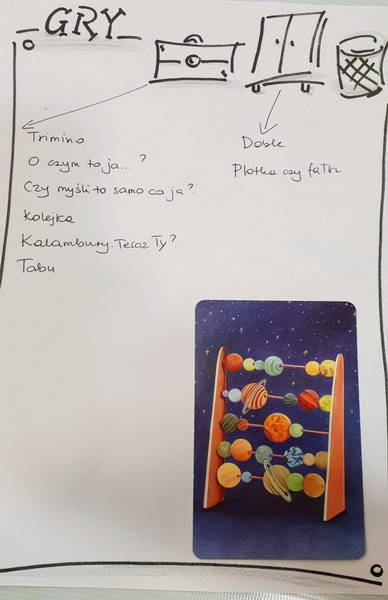 GRY
Trimino
O czym to ja... ?
Czy myśli to samo co ja?
Kolejka
Kalambury. Teraz Ty?
Tabu
Doble
Plotka czy fakt?